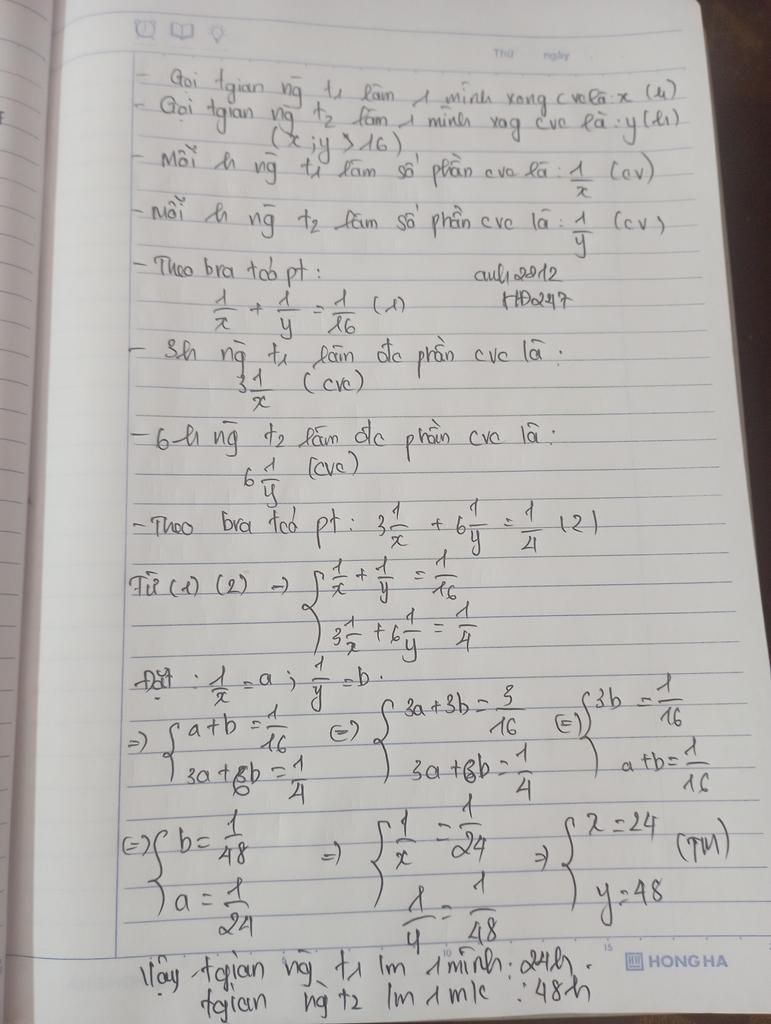 Thứ ngày
- Gọi tgian ng̃ t1 làm 1 mình xong cvc là: x (h)
- Gọi tgian ng̃ t2 làm 1 mình xog cvc là: y (h)
(x; y > 16)
- Mỗi h ng̃ t1 làm số phần cvc là: 1/x (cv)
- Mỗi h ng̃ t2 làm số phần cvc là: 1/y (cv)
- Theo bra tcó pt: auh2912
1/x + 1/y = 1/16 (1) HD247
- 3h ng̃ t1 làm đc phần cvc là:
3 1/x (cvc)
- 6h ng̃ t2 làm đc phần cvc là:
6 1/y (cvc)
- Theo bra tcó pt: 3 1/x + 6 1/y = 1/4 (2)
Từ (1) (2) → { 1/x + 1/y = 1/16
3 1/x + 6 1/y = 1/4
Đặt: 1/x = a; 1/y = b.
=> { a + b = 1/16 (=) { 3a + 3b = 3/16 (=) { 3b = 1/16
3a + 6b = 1/4 3a + 6b = 1/4 a + b = 1/16
(=) { b = 1/48 => { 1/x = 1/24 => { x = 24 (TM)
a = 1/24 1/y = 1/48 y = 48
15 HONG HA
Vậy tgian ng̃ t1 lm 1 mình: 24h.
tgian ng̃ t2 lm 1 mk : 48h